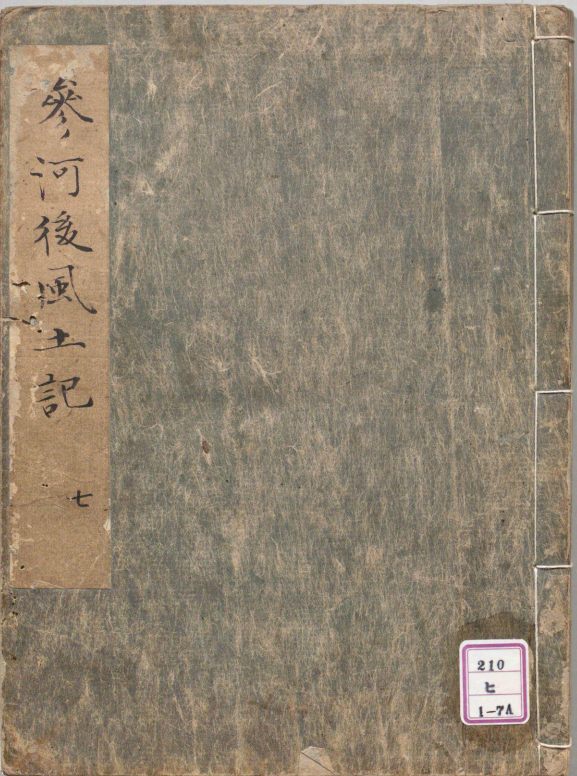 參河後風土記
七
210
ヒ
1-7A